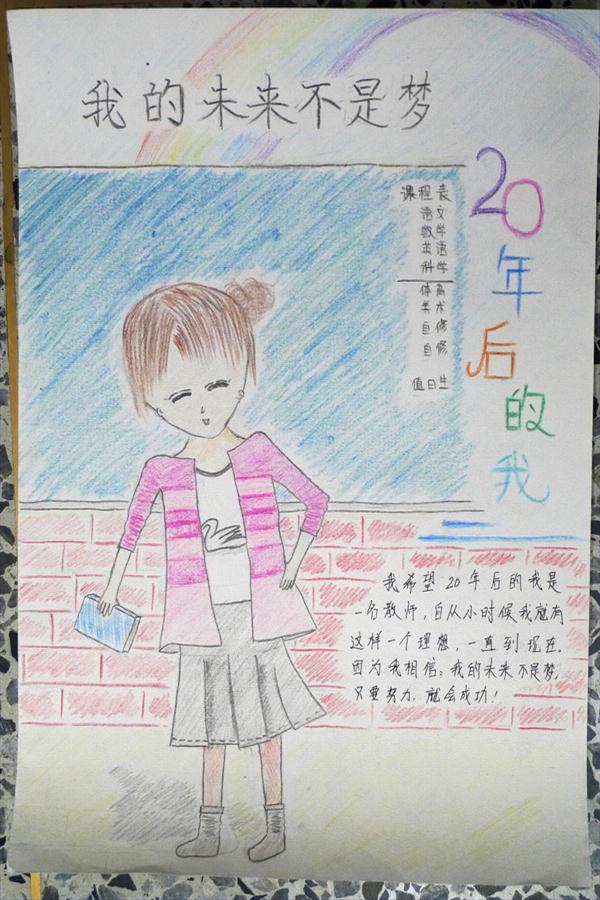 我的未来不是梦
20年后的我
课程表
语文
数学
英语
科学
体育
美术
自修
自修
值日生
我希望20年后的我是
一名教师,自从小时候我就有
这样一个理想,一直到现在.
因为我相信:我的未来不是梦,
只要努力,就会成功!